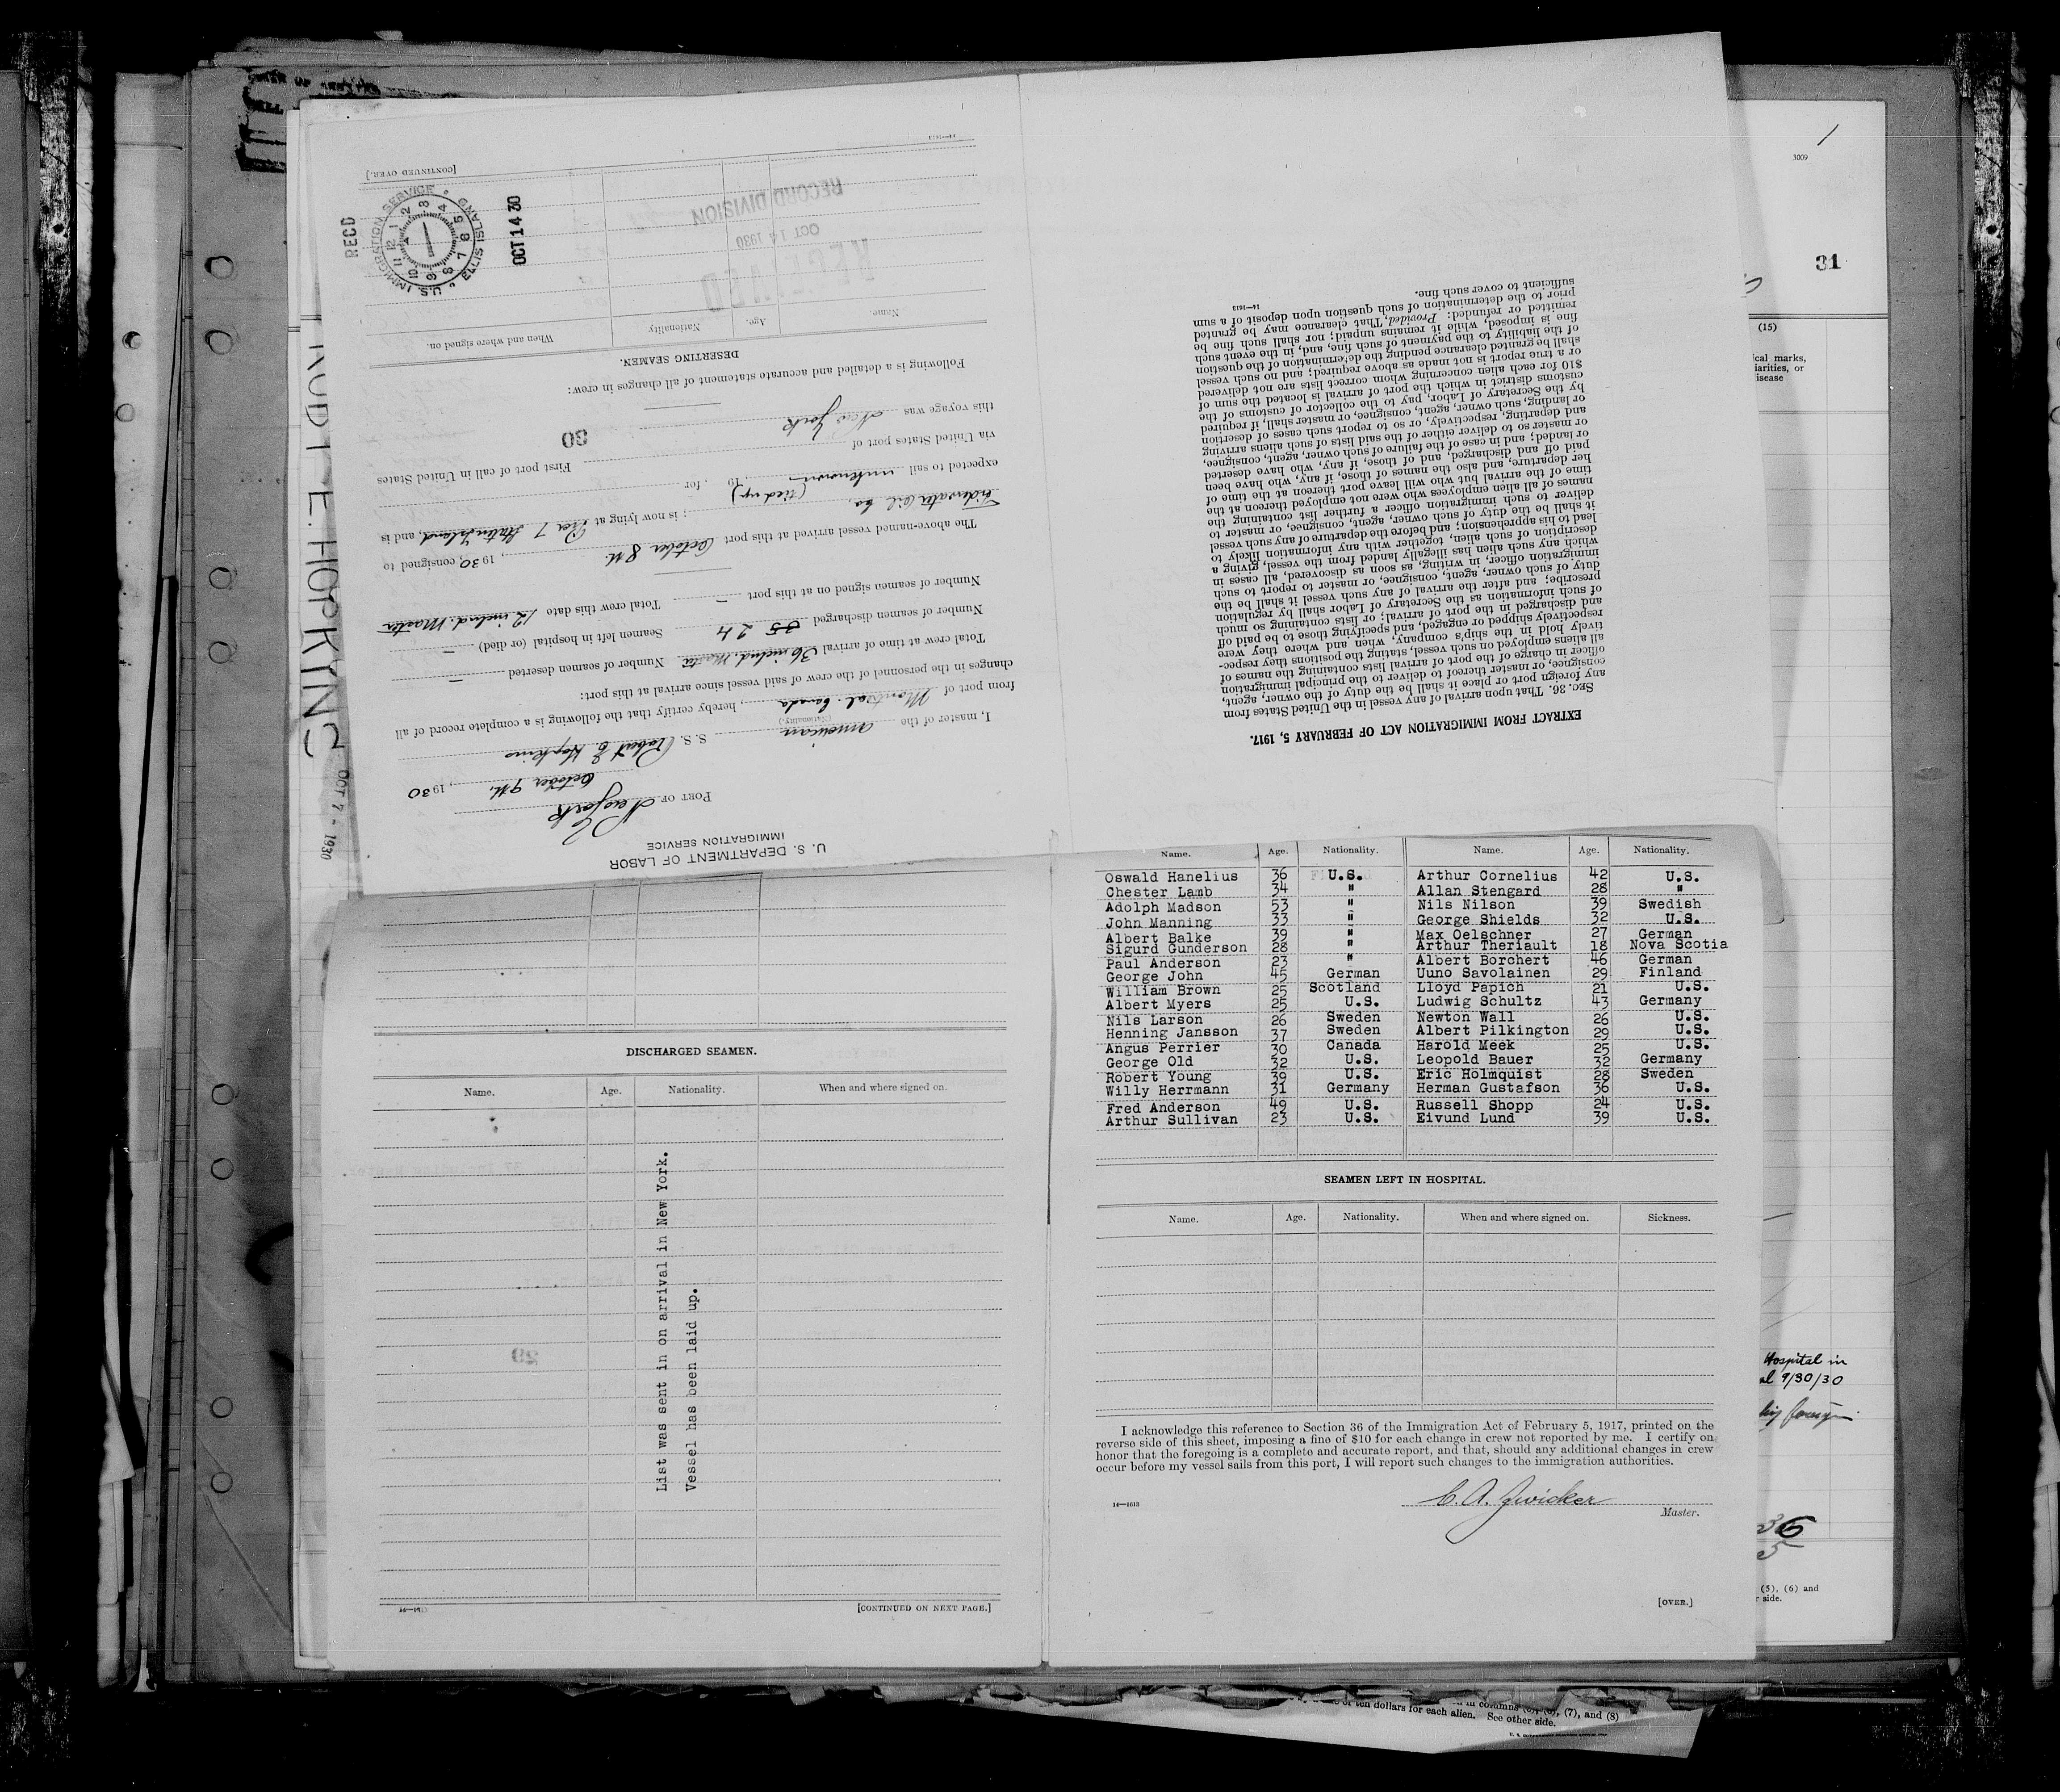 U. S. DEPARTMENT OF LABOR
IMMIGRATION SERVICE
PORT OF New York
October 9th, 1930
I, master of the American S.S. Robert E Hopkins
(Nationality.)
from port of Montreal. Canada, hereby certify that the following is a complete record of all
changes in the personnel of the crew of said vessel since arrival at this port:
Total crew at time of arrival 36 includ. Master Number of seamen deserted —
Number of seamen discharged 35 24 Seamen left in hospital (or died) —
Number of seamen signed on at this port — Total crew this date 12 includ. Master
The above-named vessel arrived at this port October 8th, 1930, consigned to
Tidewater Oil Co.; is now lying at Pier 7 Staten Island, and is
expected to sail unknown (tied up), 19 , for
via United States port of First port of call in United States
this voyage was New York
30
Following is a detailed and accurate statement of all changes in crew:
DESERTING SEAMEN.
Name. Age. Nationality When and where signed on.
RECEIVED
OCT 14 1930
RECORD DIVISION
RECD
U.S. IMMIGRATION SERVICE
ELLIS ISLAND
1 2 3 4 5 6 7 8 9 10 11 12
OCT 14 30
[CONTINUED OVER.]
14—1613
EXTRACT FROM IMMIGRATION ACT OF FEBRUARY 5, 1917.
SEC. 36. That upon arrival of any vessel in the United States from
any foreign port or place it shall be the duty of the owner, agent,
consignee, or master thereof to deliver to the principal immigration
officer in charge of the port of arrival lists containing the names of
all aliens employed on such vessel, stating the positions they respec-
tively hold in the ship's company, when and where they were
respectively shipped or engaged, and specifying those to be paid off
and discharged in the port of arrival; or lists containing so much
of such information as the Secretary of Labor shall by regulation
prescribe; and after the arrival of any such vessel it shall be the
duty of such owner, agent, consignee, or master to report to such
immigration officer, in writing, as soon as discovered, all cases in
which any such alien has illegally landed from the vessel, giving a
description of such alien, together with any information likely to
lead to his apprehension; and before the departure of any such vessel
it shall be the duty of such owner, agent, consignee, or master to
deliver to such immigration officer a further list containing the
names of all alien employees who were not employed thereon at the
time of the arrival but who will leave port thereon at the time of
her departure, and also the names of those, if any, who have been
paid off and discharged, and of those, if any, who have deserted
or landed; and in case of the failure of such owner, agent, consignee,
or master so to deliver either of the said lists of such aliens arriving
and departing, respectively, or so to report such cases of desertion
or landing, such owner, agent, consignee, or master shall, if required
by the Secretary of Labor, pay to the collector of customs of the
customs district in which the port of arrival is located the sum of
$10 for each alien concerning whom correct lists are not delivered
or a true report is not made as above required; and no such vessel
shall be granted clearance pending the determination of the question
of the liability to the payment of such fine, and, in the event such
fine is imposed, while it remains unpaid; nor shall such fine be
remitted or refunded: Provided, That clearance may be granted
prior to the determination of such question upon deposit of a sum
sufficient to cover such fine.
14—1613
Name. Age. Nationality. Name. Age. Nationality.
Oswald Hanelius 36 U.S. Arthur Cornelius 42 U.S.
Chester Lamb 34 " Allan Stengard 28 "
Adolph Madson 53 " Nils Nilson 39 Swedish
John Manning 33 " George Shields 32 U.S.
Albert Balke 39 " Max Oelschner 27 German
Sigurd Gunderson 28 " Arthur Theriault 18 Nova Scotia
Paul Anderson 23 " Albert Borchert 46 German
George John 45 German Uuno Savolainen 29 Finland
William Brown 25 Scotland Lloyd Papich 21 U.S.
Albert Myers 25 U.S. Ludwig Schultz 43 Germany
Nils Larson 26 Sweden Newton Wall 26 U.S.
Henning Jansson 37 Sweden Albert Pilkington 29 U.S.
Angus Perrier 30 Canada Harold Meek 25 U.S.
George Old 32 U.S. Leopold Bauer 32 Germany
Robert Young 39 U.S. Eric Holmquist 28 Sweden
Willy Herrmann 31 Germany Herman Gustafson 36 U.S.
Fred Anderson 49 U.S. Russell Shopp 24 U.S.
Arthur Sullivan 23 U.S. Eivund Lund 39 U.S.
DISCHARGED SEAMEN.
Name. Age. Nationality. When and where signed on.
List was sent in on arrival in New York.
Vessel has been laid up.
29
[CONTINUED ON NEXT PAGE.]
SEAMEN LEFT IN HOSPITAL.
Name. Age. Nationality. When and where signed on. Sickness.
I acknowledge this reference to Section 36 of the Immigration Act of February 5, 1917, printed on the
reverse side of this sheet, imposing a fine of $10 for each change in crew not reported by me. I certify on
honor that the foregoing is a complete and accurate report, and that, should any additional changes in crew
occur before my vessel sails from this port, I will report such changes to the immigration authorities.
C. A. Zwicker
Master.
14—1613
[OVER.]
E. HOPKINS
OCT 7 - 1930
1
3009
31
(15)
ical marks,
iarities, or
isease
Hospital in
al 9/30/30
36
5
(5), (6) and
r side.
of ten dollars for each alien. See other side.
in columns (5), (6), (7), and (8)